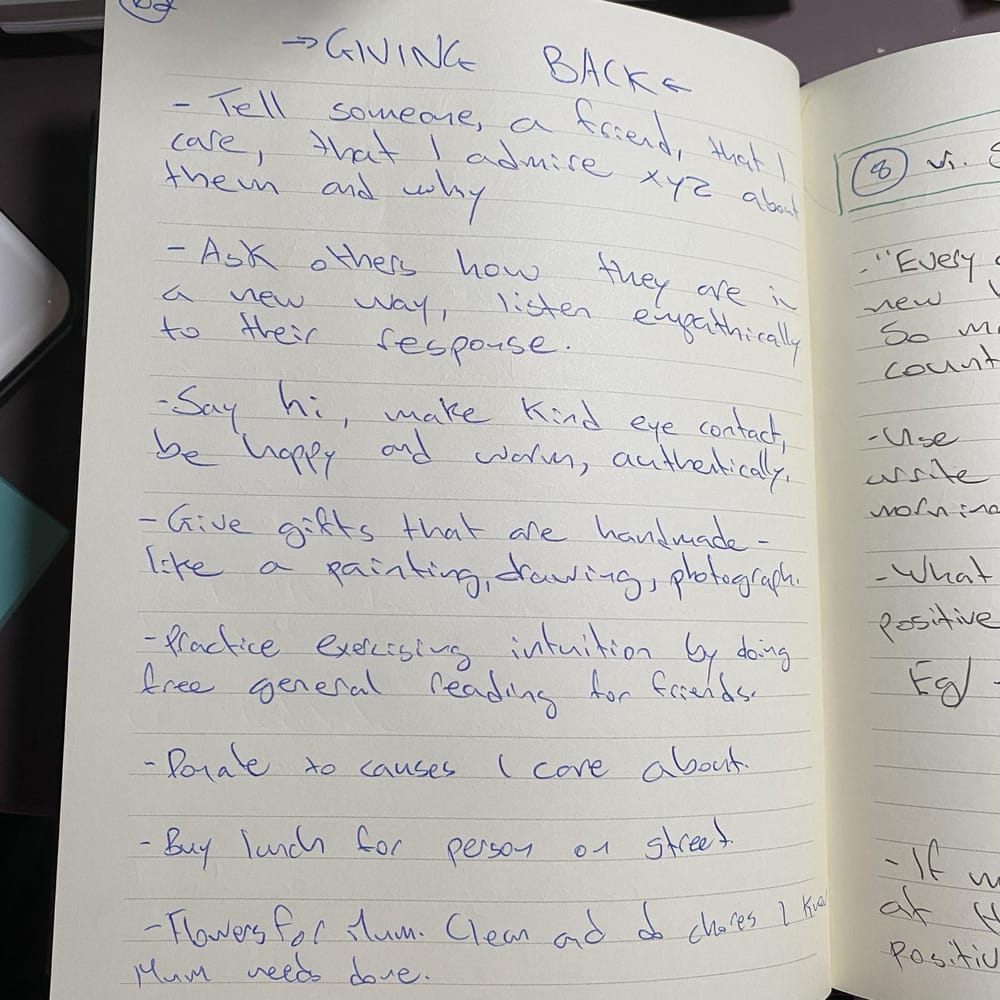 → GIVING BACK ←
- Tell someone, a friend, that I
care, that I admire xyz about
them and why
- Ask others how they are in
a new way, listen empathically
to their response.
- Say hi, make kind eye contact,
be happy and warm, authentically.
- Give gifts that are handmade -
like a painting, drawing, photograph.
- Practice exercising intuition by doing
free general reading for friends.
- Donate to causes I care about.
- Buy lunch for person on street.
- Flowers for Mum. Clean and do chores I
Mum needs done.
8 vi.
- "Every
new
So
count
- Use
write
- What
positive
Eg/ -
- If
at
Positiv